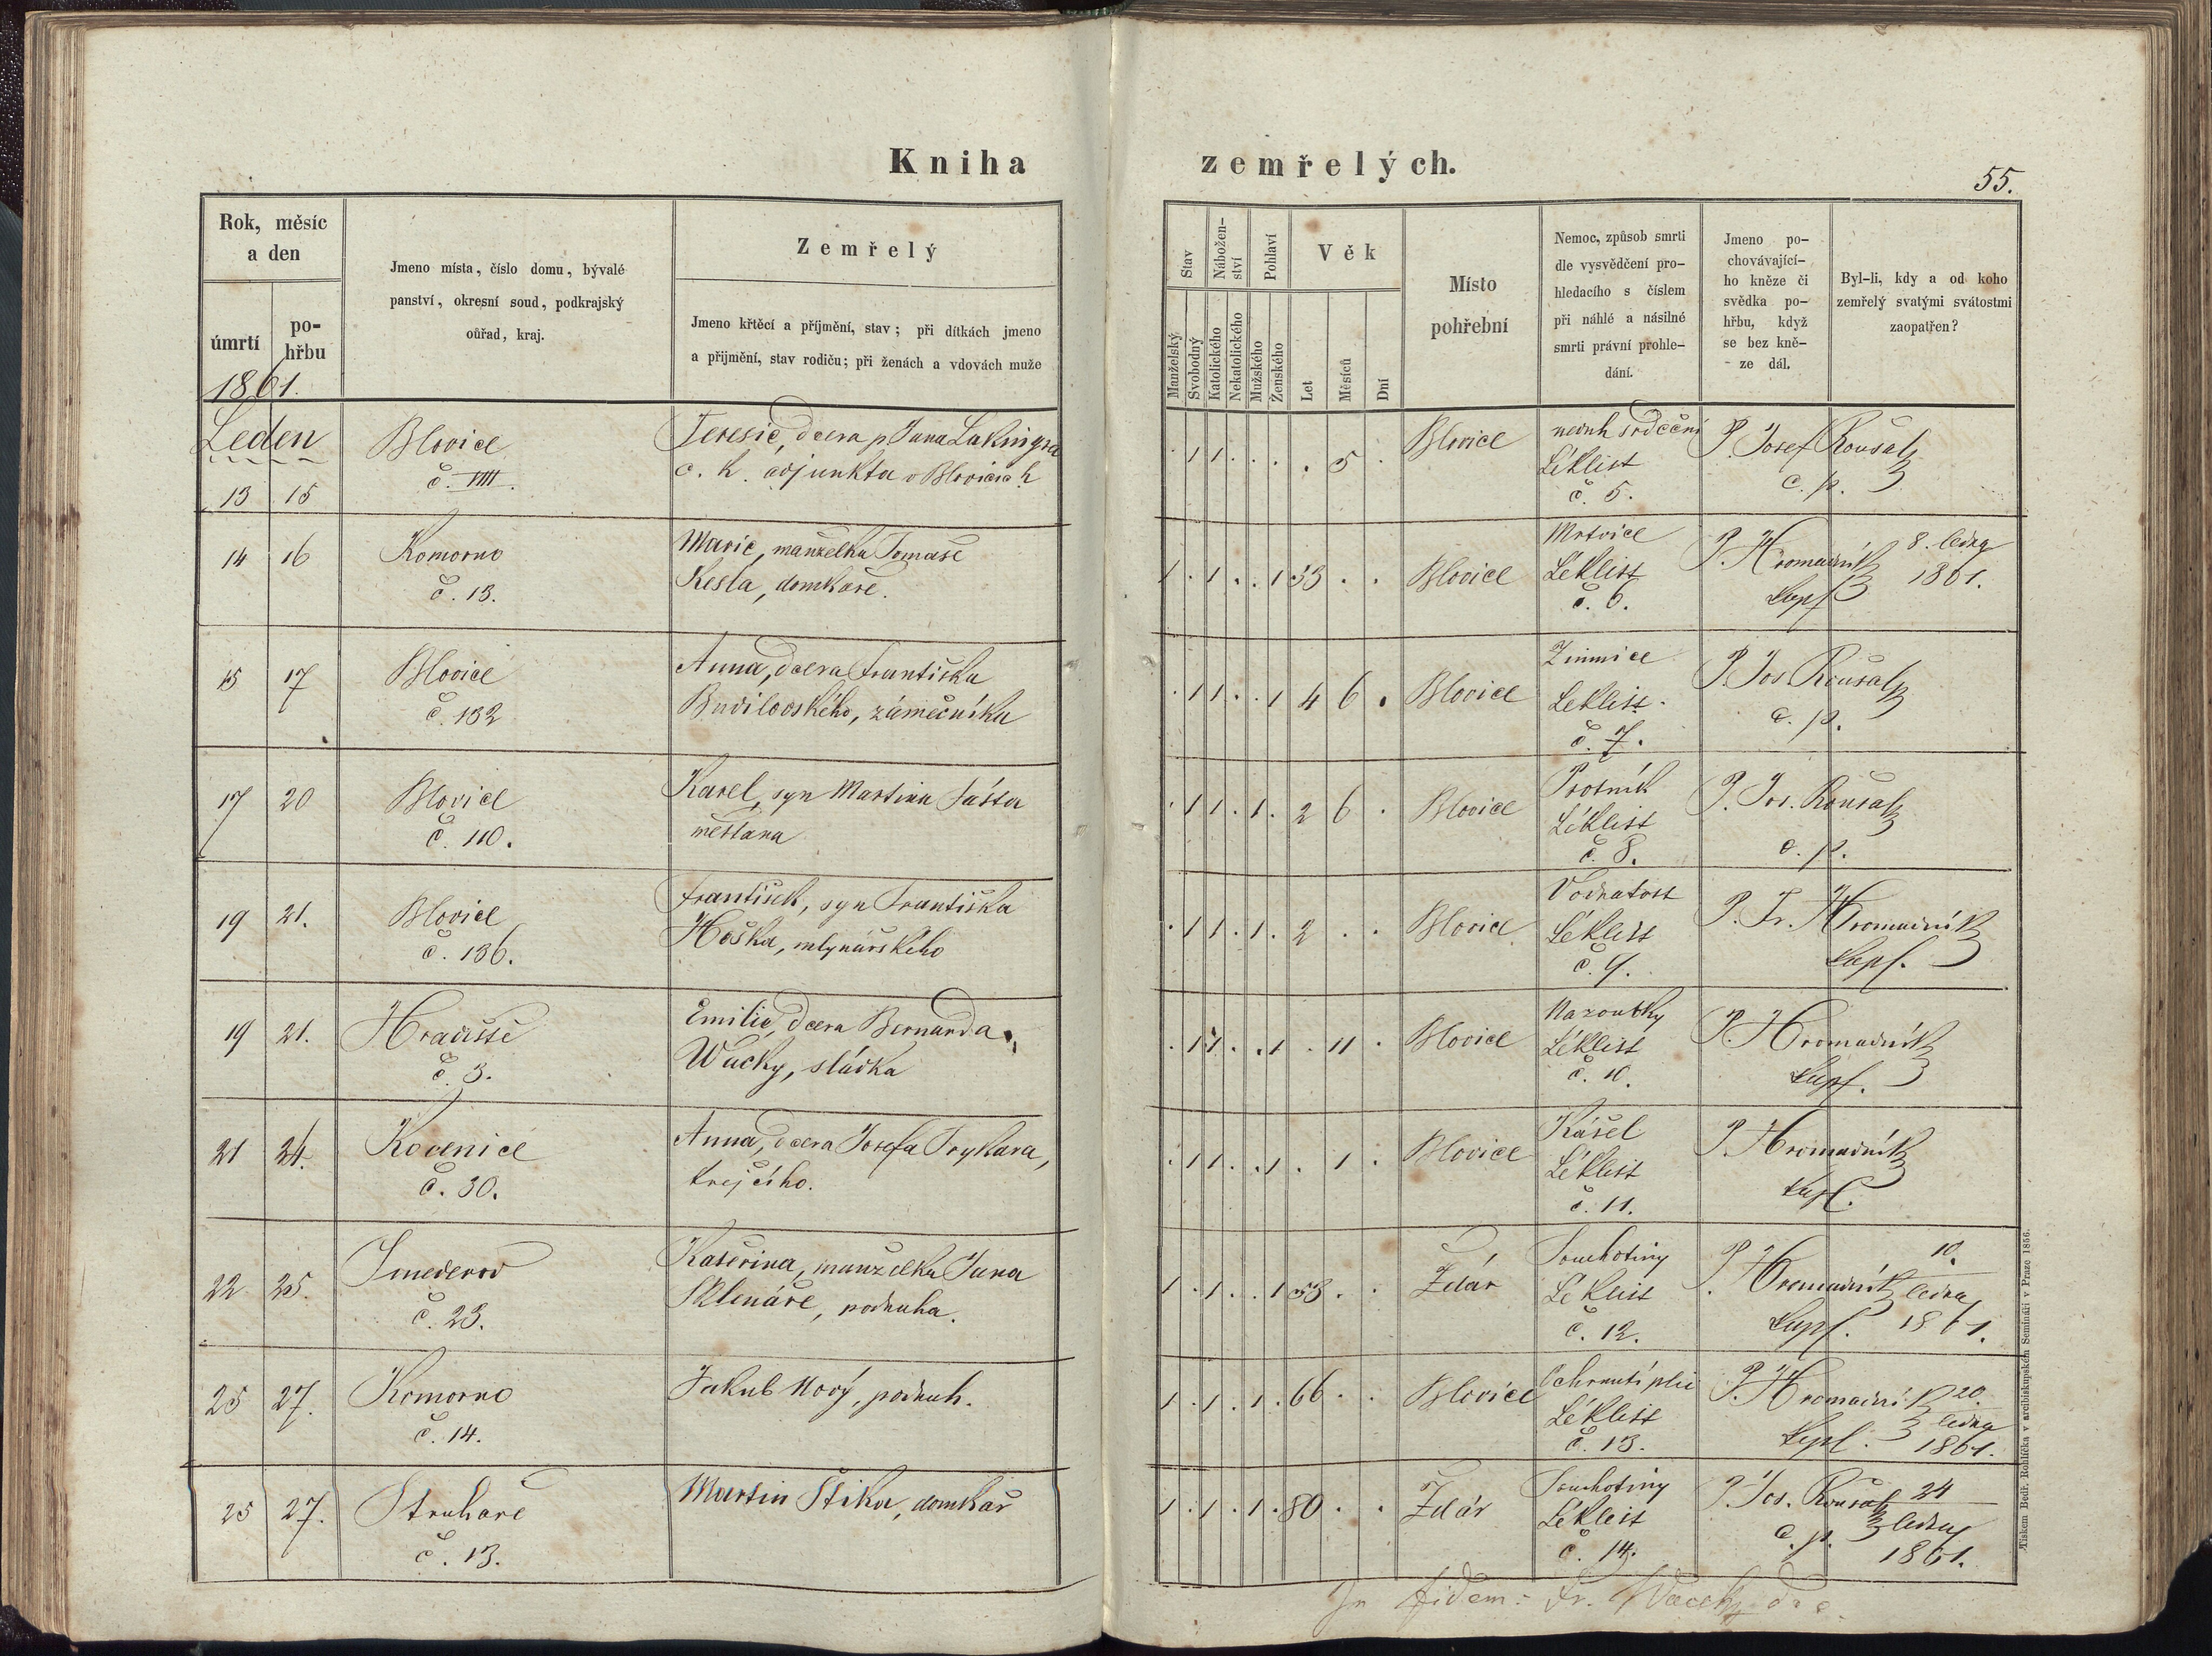 Kniha zemřelých.
55.
Rok, měsíc
a den
úmrtí
po-
hřbu
1861.
Jmeno místa, číslo domu, bývalé
panství, okresní soud, podkrajský
ouřad, kraj.
Zemřelý
Jmeno křtěcí a příjmění, stav; při dítkách jmeno
a přijmění, stav rodičů; při ženách a vdovách muže
Stav
Manželský
Svobodný
Nábožen-
ství
Katolického
Nekatolického
Pohlaví
Mužského
Ženského
Věk
Let
Měsíců
Dní
Místo
pohřební
Nemoc, způsob smrti
dle vysvědčení pro-
hledacího s číslem
při náhlé a násilné
smrti právní prohle-
dání.
Jmeno po-
chovávající-
ho kněze či
svědka po-
hřbu, když
se bez kně-
ze dál.
Byl-li, kdy a od koho
zemřelý svatými svátostmi
zaopatřen?
Leden
13 15
Blovice
č. VIII.
Teresie, dcera p. Jana
c. k. adjunkta v Blovicích
. 1 1 . . . . 5 .
Blovice
neduh srdeční
Léklist
č. 5.
P. Josef Roušal
c. p.
14 16
Komorno
č. 13.
Marie, manželka Tomaše
Kesla, domkaře.
1 . 1 . . 1 53 . .
Blovice
Mrtvice
Léklist
č. 6.
P. Hromadník
kapl.
8. ledna
1861.
15 17
Blovice
č. 132
Anna, dcera Františka
Budilovského, zámečníka
. 1 1 . . 1 4 6 .
Blovice
Zimnice
Leklist.
č. 7.
P. Jos. Roušal
c. p.
17 20
Blovice
č. 110.
Karel, syn Martina Šásta
měšťana
. 1 1 . 1 . 2 6 .
Blovice
Psotník
Léklist
č. 8.
P. Jos. Roušal
c. p.
19 21.
Blovice
č. 136.
František, syn Františka
Hoška, mlynářského
. 1 1 . 1 . 2 . .
Blovice
Vodnatost
Léklist
č. 9.
P. Fr. Hromadník
kapl.
19 21.
Hradiště
č. 3.
Emilie, dcera Bernarda
Wacky, sládka
. 1 1 . . 1 . 11 .
Blovice
Na zoubky
Léklist
č. 10.
P. Hromadník
kapl.
21 24.
Kocenice
č. 30.
Anna, dcera Josefa Frykara,
krejčího.
. 1 1 . . 1 . 1 .
Blovice
Kašel
Léklist
č. 11.
P. Hromadník
kapl.
22 25.
Smederov
č. 23.
Kateřina, manželka Jana
Sklenáře, podruha.
1 . 1 . . 1 53 . .
Žďár
Souchotiny
Léklist
č. 12.
P. Hromadník
kapl.
10.
ledna
1861.
25 27.
Komorno
č. 14.
Jakub Nový, podruh.
1 . 1 . 1 . 66 . .
Blovice
Ochrnutí plic
Léklist
č. 13.
P. Hromadník
kapl.
20.
ledna
1861.
25 27.
Struhaře
č. 13.
Martin Štika, domkař
1 . 1 . 1 . 80 . .
Žďár
Souchotiny
Léklist
č. 14.
P. Jos. Roušal
c. p.
24
ledna
1861.
In fidem: Fr. Wacek
Tiskem Bedř. Rohlíčka v arcibiskupském Semináři v Praze 1856.